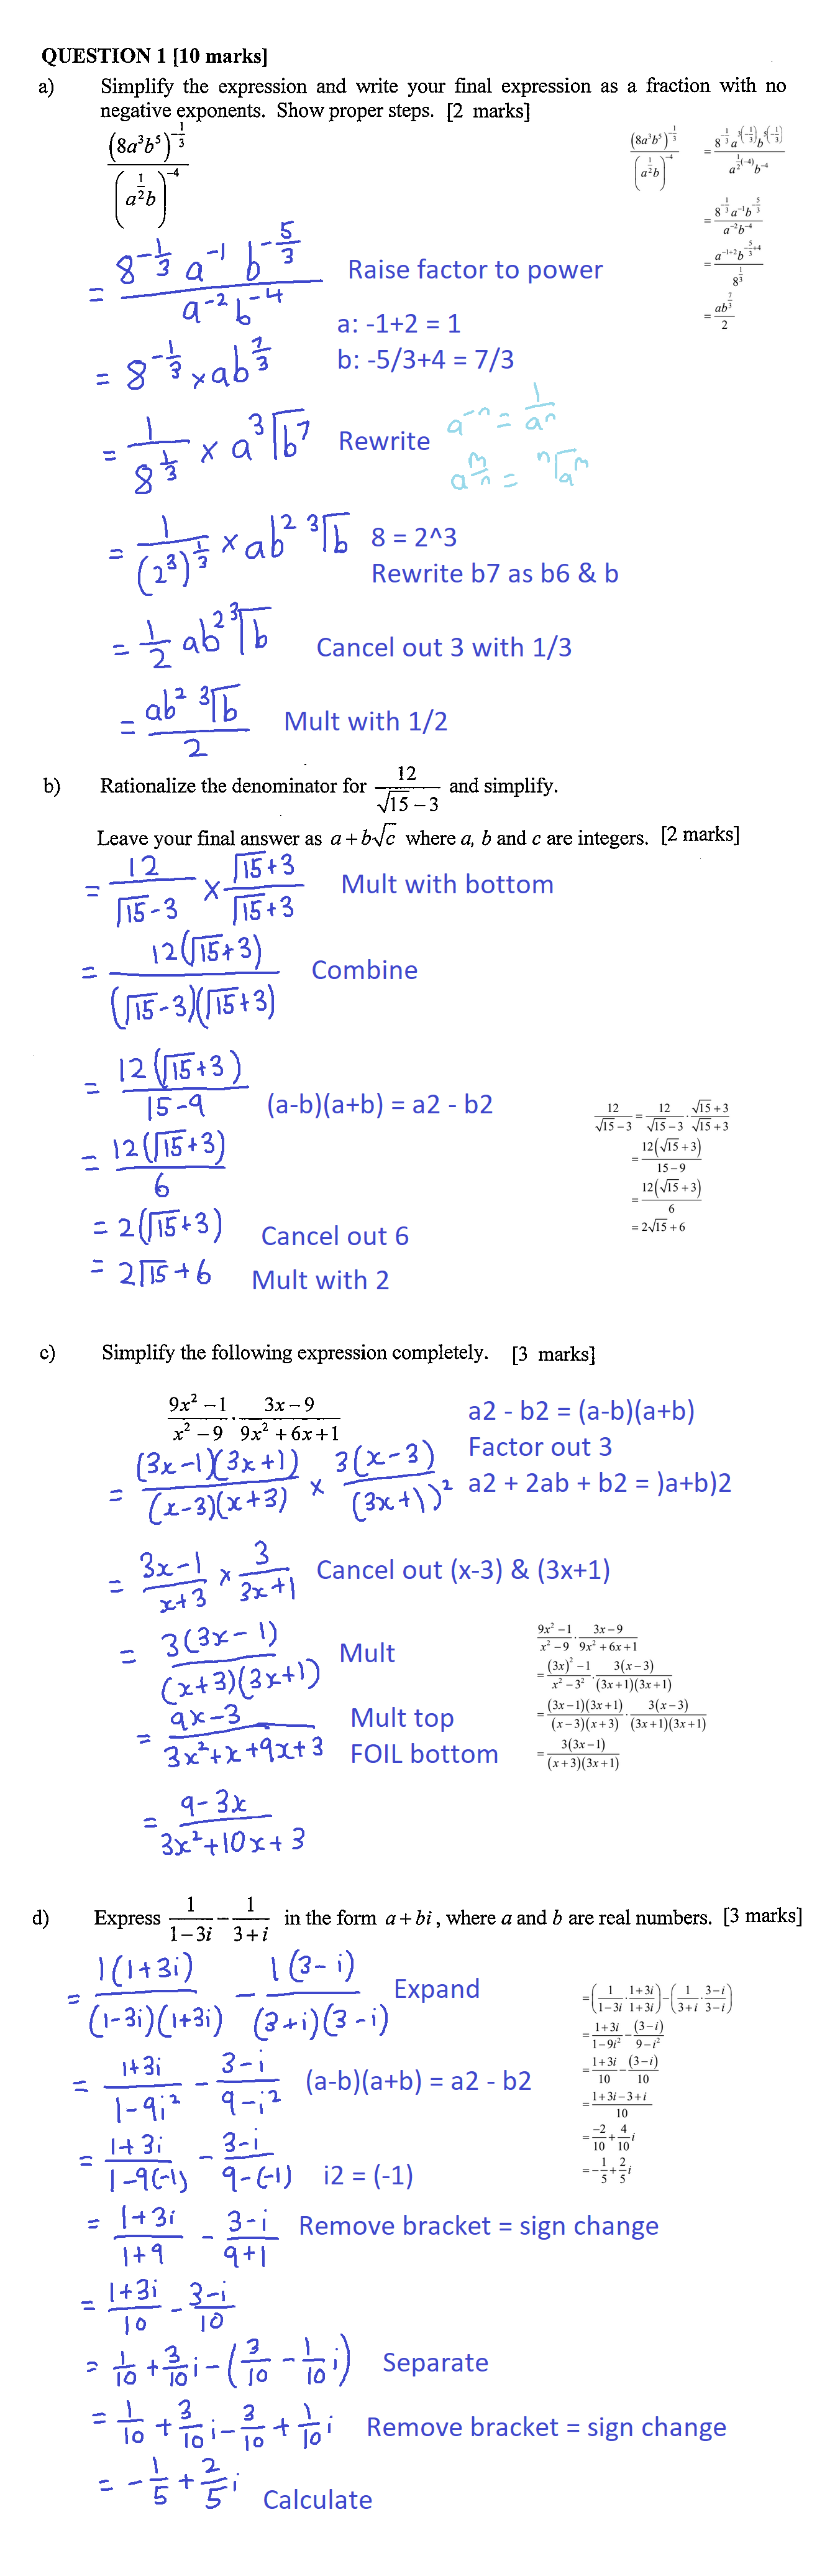 QUESTION 1 [10 marks]
a) Simplify the expression and write your final expression as a fraction with no
negative exponents. Show proper steps. [2 marks]
(8a³b⁵)^(-1/3) / (a^(1/2)b)^(-4)
= 8^(-1/3) a^(-1) b^(-5/3) / a^(-2) b^(-4) Raise factor to power
a: -1+2 = 1
= 8^(-1/3) × ab^(7/3) b: -5/3+4 = 7/3
= 1/8^(1/3) × a ³√b⁷ Rewrite a^(-n) = 1/a^n
a^(m/n) = ⁿ√a^m
= 1/(2³)^(1/3) × ab² ³√b 8 = 2^3
Rewrite b7 as b6 & b
= 1/2 ab² ³√b Cancel out 3 with 1/3
= ab² ³√b / 2 Mult with 1/2
(8a³b⁵)^(-1/3) / (a^(1/2)b)^(-4) = 8^(-1/3) a^(3(-1/3)) b^(5(-1/3)) / a^(1/2(-4)) b^(-4)
= 8^(-1/3) a^(-1) b^(-5/3) / a^(-2) b^(-4)
= a^(-1+2) b^(-5/3+4) / 8^(1/3)
= ab^(7/3) / 2
b) Rationalize the denominator for 12/(√15 − 3) and simplify.
Leave your final answer as a + b√c where a, b and c are integers. [2 marks]
= 12/(√15-3) × (√15+3)/(√15+3) Mult with bottom
= 12(√15+3) / (√15-3)(√15+3) Combine
= 12(√15+3) / 15-9 (a-b)(a+b) = a2 - b2
= 12(√15+3) / 6
= 2(√15+3) Cancel out 6
= 2√15+6 Mult with 2
12/(√15−3) = 12/(√15−3) · (√15+3)/(√15+3)
= 12(√15+3) / 15−9
= 12(√15+3) / 6
= 2√15+6
c) Simplify the following expression completely. [3 marks]
(9x² −1)/(x² −9) · (3x−9)/(9x² +6x+1) a2 - b2 = (a-b)(a+b)
Factor out 3
= (3x-1)(3x+1)/(x-3)(x+3) × 3(x-3)/(3x+1)² a2 + 2ab + b2 = )a+b)2
= (3x-1)/(x+3) × 3/(3x+1) Cancel out (x-3) & (3x+1)
= 3(3x-1) / (x+3)(3x+1) Mult
= 9x-3 / 3x²+x+9x+3 Mult top
FOIL bottom
= 9-3x / 3x²+10x+3
(9x² −1)/(x² −9) · (3x−9)/(9x² +6x+1)
= ((3x)² −1)/(x² −3²) · 3(x−3)/(3x+1)(3x+1)
= (3x−1)(3x+1)/(x−3)(x+3) · 3(x−3)/(3x+1)(3x+1)
= 3(3x−1) / (x+3)(3x+1)
d) Express 1/(1−3i) − 1/(3+i) in the form a + bi, where a and b are real numbers. [3 marks]
= 1(1+3i)/(1-3i)(1+3i) - 1(3-i)/(3+i)(3-i) Expand
= (1+3i)/(1-9i²) - (3-i)/(9-i²) (a-b)(a+b) = a2 - b2
= (1+3i)/(1-9(-1)) - (3-i)/(9-(-1)) i2 = (-1)
= (1+3i)/(1+9) - (3-i)/(9+1) Remove bracket = sign change
= (1+3i)/10 - (3-i)/10
= 1/10 + 3/10 i - (3/10 - 1/10 i) Separate
= 1/10 + 3/10 i - 3/10 + 1/10 i Remove bracket = sign change
= -1/5 + 2/5 i Calculate
= (1/(1−3i) · (1+3i)/(1+3i)) − (1/(3+i) · (3−i)/(3−i))
= (1+3i)/(1−9i²) − (3−i)/(9−i²)
= (1+3i)/10 − (3−i)/10
= (1+3i−3+i)/10
= −2/10 + 4/10 i
= −1/5 + 2/5 i